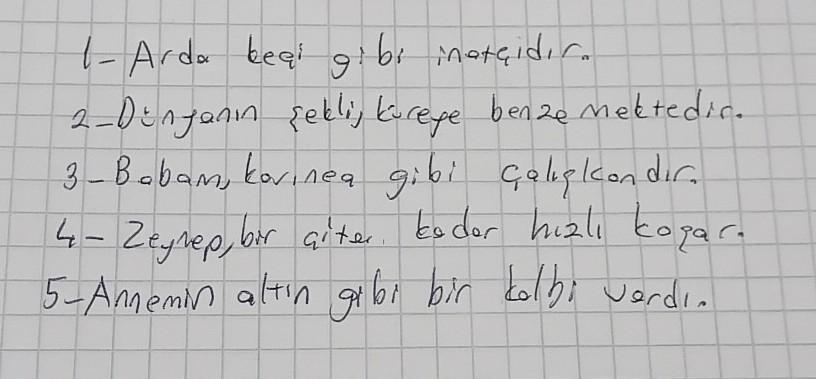 1- Arda keçi gibi inatçıdır.
2- Dünyanın şekli, küreye benzemektedir.
3- Babam, karınca gibi çalışkandır.
4- Zeynep, bir çita kadar hızlı koşar.
5- Annemin altın gibi bir kalbi vardı.